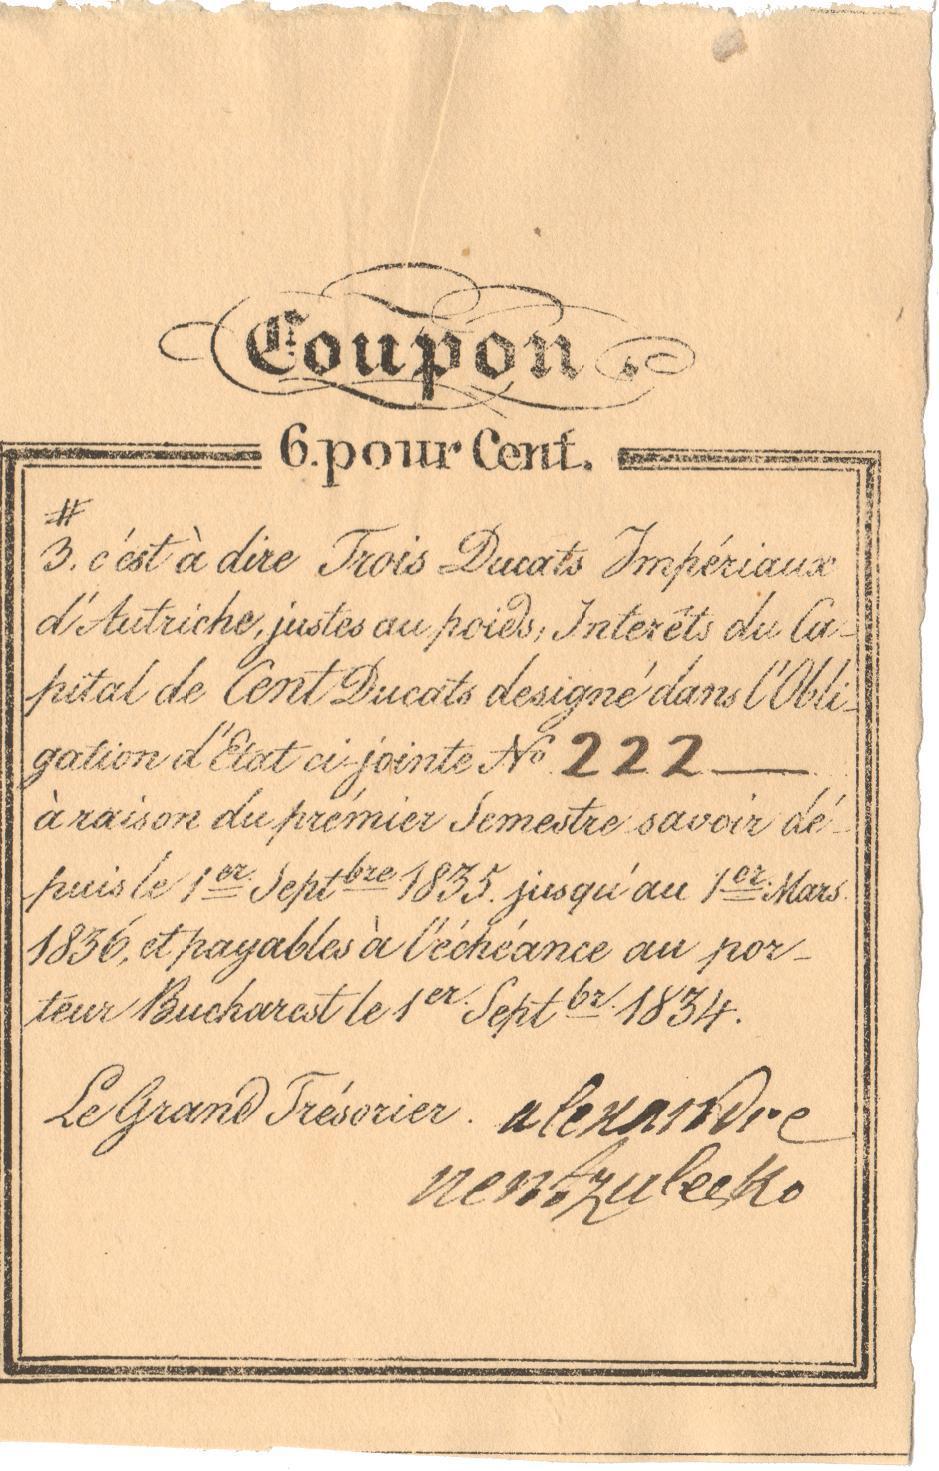 Coupon.
6. pour Cent.
#
3. c'est à dire Trois Ducats Impériaux
d'Autriche, justes au poids, Interêts du Ca-
pital de Cent Ducats designé dans l'Obli-
gation d'Etat ci-jointe No. 222 —
à raison du prémier Semestre savoir dé-
puis le 1er Septbre 1835. jusqu'au 1er Mars
1836, et payables à l'échéance au por-
teur Bucharest le 1er Septbr. 1834.
Le Grand Trésorier. alexandre
nentzulesko